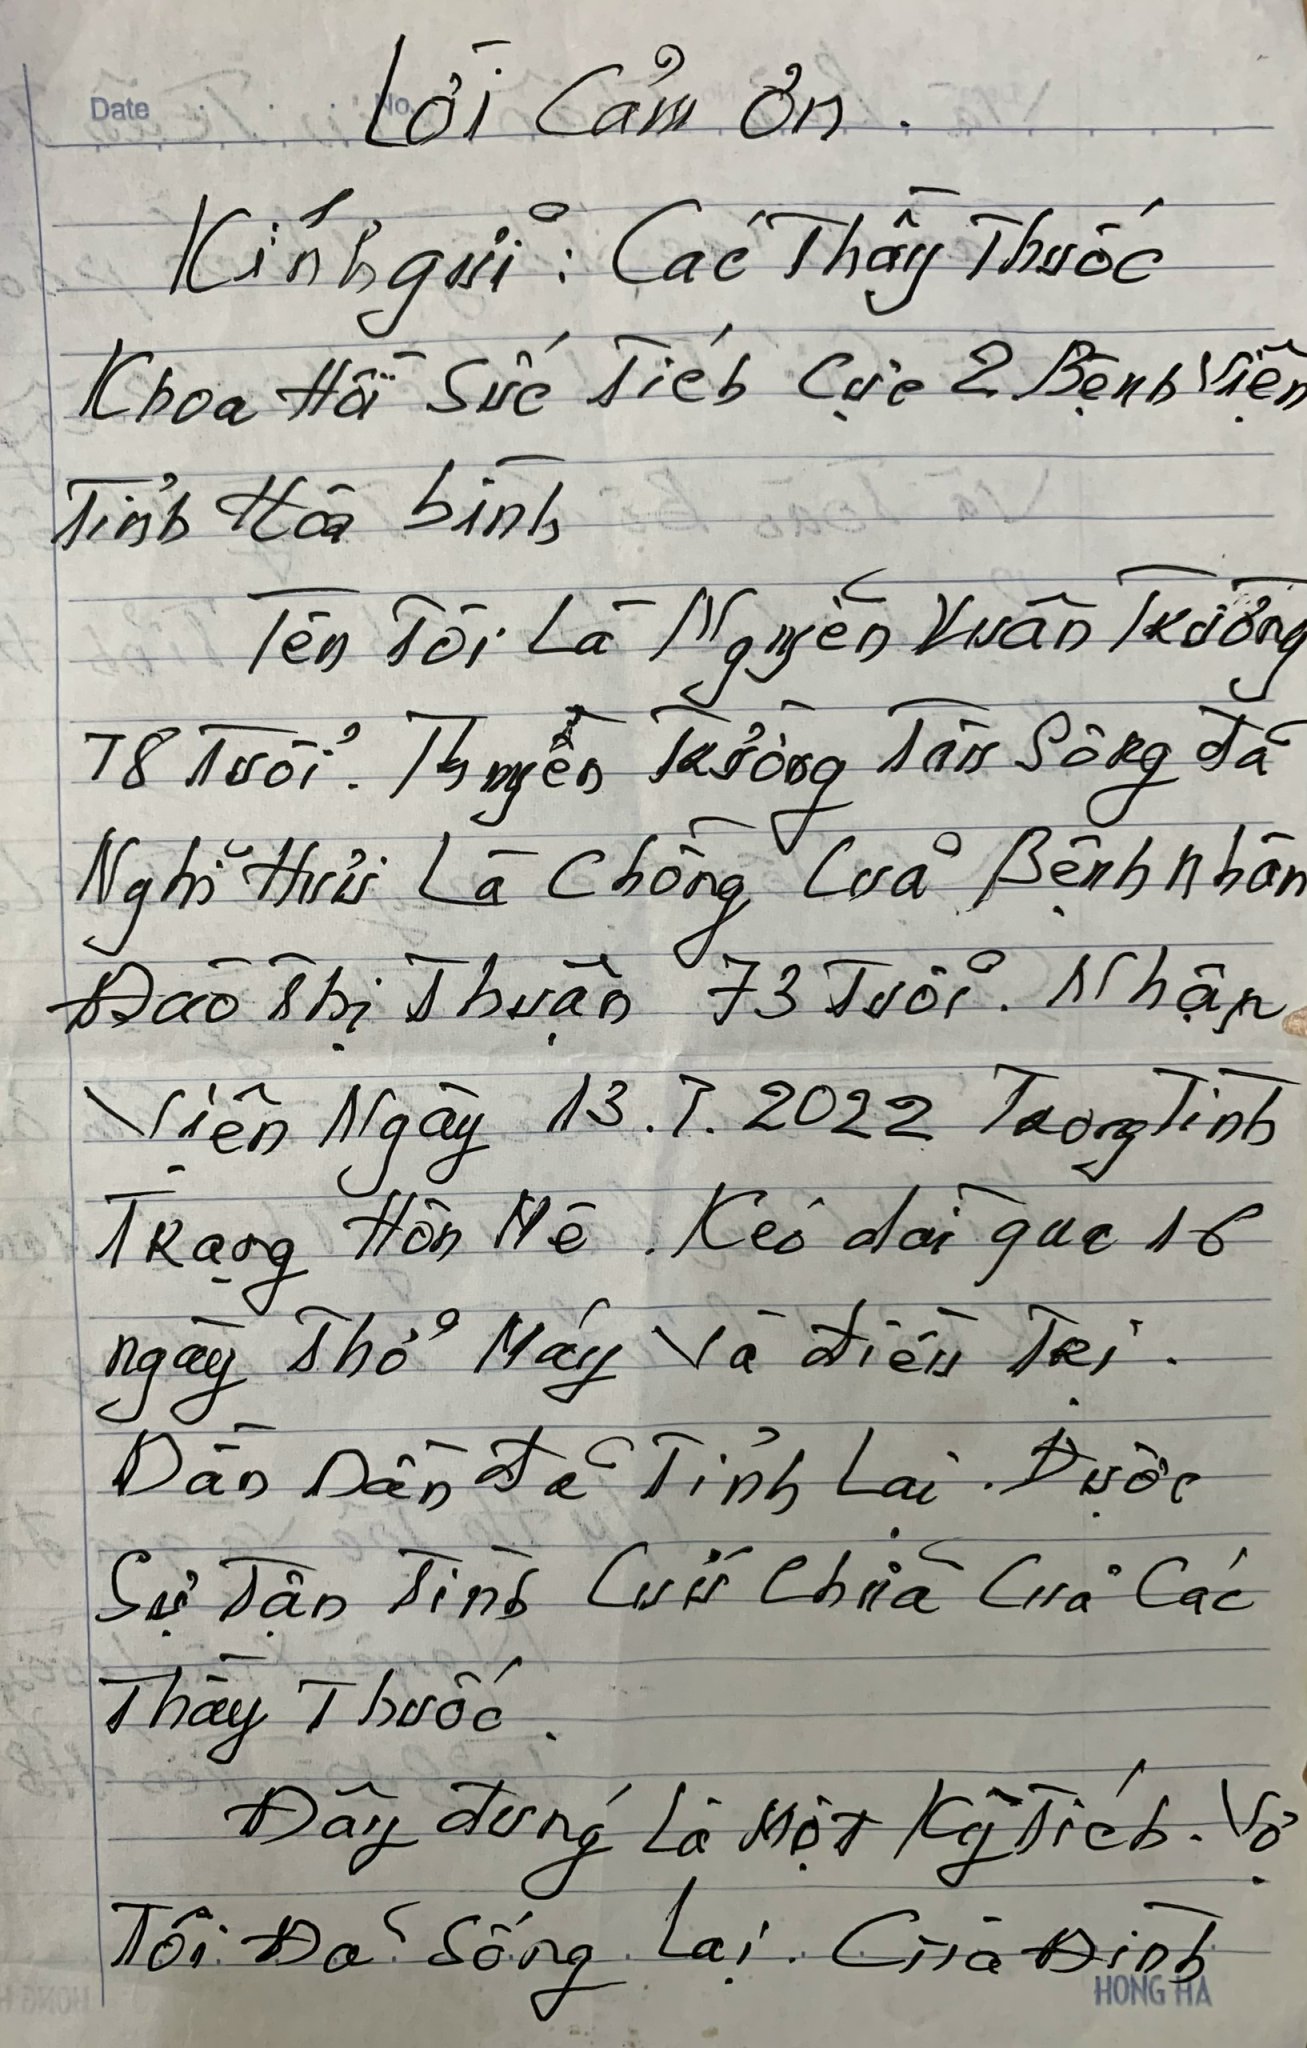 Date No.
Lời Cảm Ơn.
Kính gửi: Các Thầy Thuốc
Khoa Hồi Sức Tích Cực 2 Bệnh Viện
Tỉnh Hòa bình
Tên Tôi Là Nguyễn Xuân Trường
78 Tuổi. Thuyền Trưởng Tàu Sông đà
Nghĩ Hưu Là Chồng Của Bệnh nhân
Đào Thị Thuận 73 Tuổi. Nhập
Viện Ngày 13.7.2022 Trong Tình
Trạng Hôn Mê. Kéo dài qua 16
ngày Thở Máy Và điều Trị.
Dần Dần đã Tỉnh Lại. Được
Sự Tận Tình Cứu Chữa Của Các
Thầy Thuốc.
Đây đúng Là Một Kỳ Tích. Vợ
Tôi Đã Sống Lại. Gia Đình
HONG HA